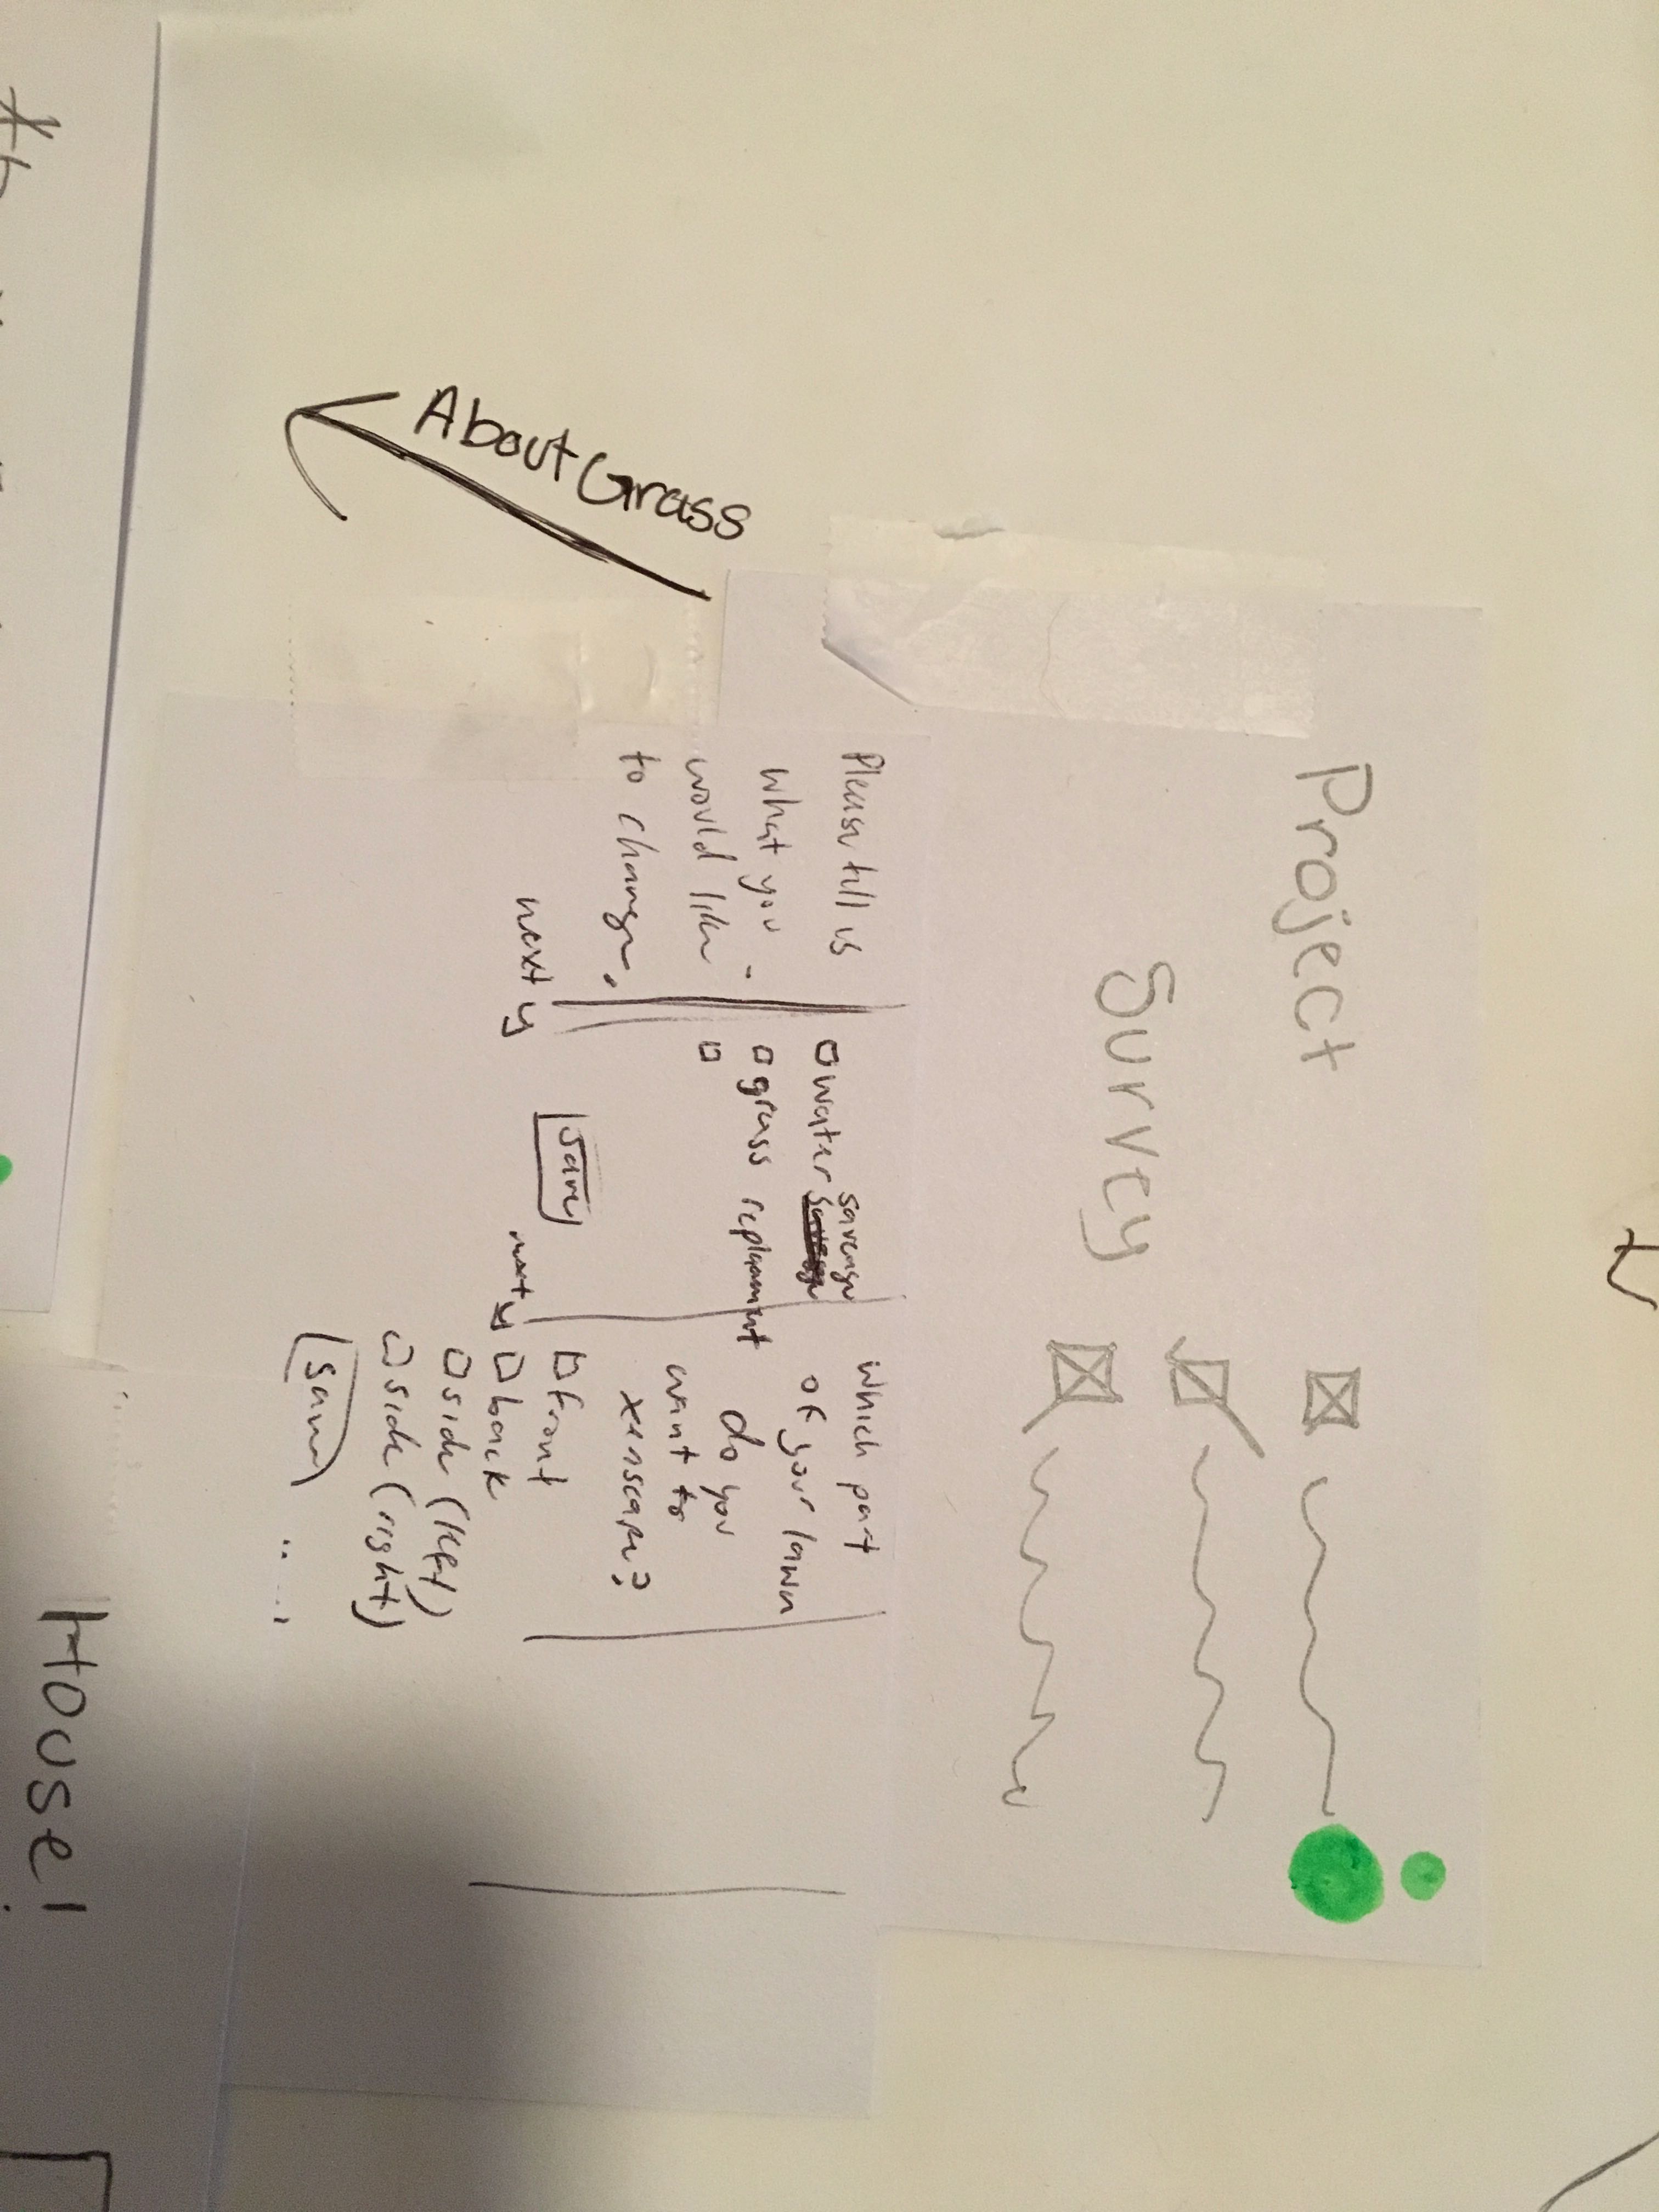 Project
Survey
Please tell us
what you
would like
to change.
next
□ water savenge
□ grass replacement
□
Save
next
which part
of your lawn
do you
want to
xeriscape?
□ front
□ back
□ side (left)
□ side (right)
Save
About Grass
House!